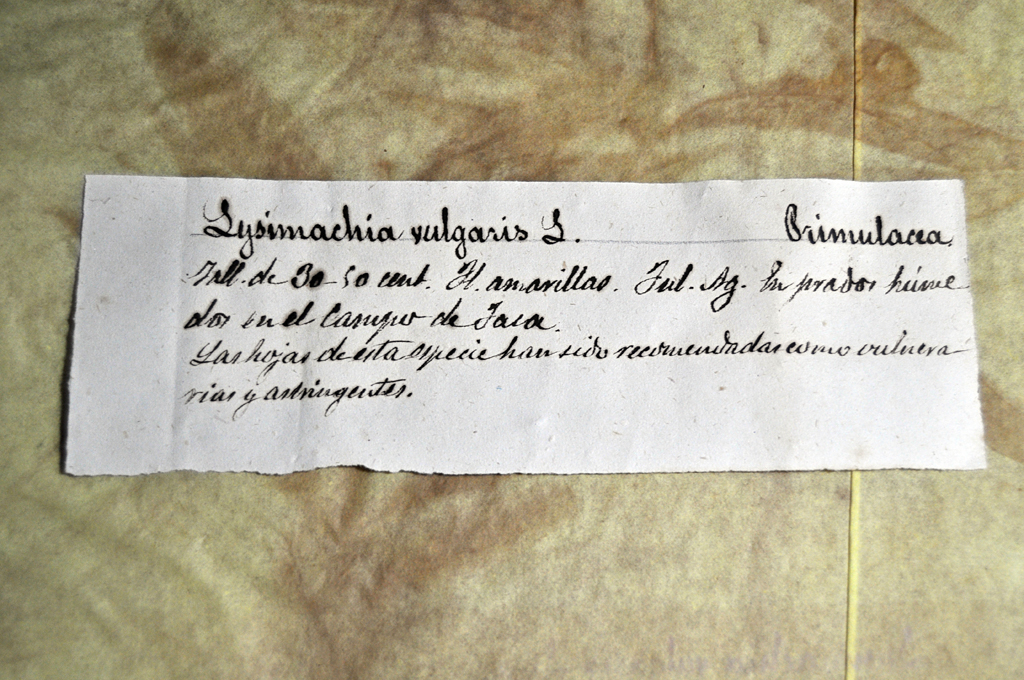 Lysimachia vulgaris L. Primulacea.
Tall. de 30-50 cent. Fl. amarillas. Jul. Ag. En prados húme-
dos en el Campo de Jaca.
Las hojas de ésta especie han sido recomendadas como vulnera-
rias y astringentes.